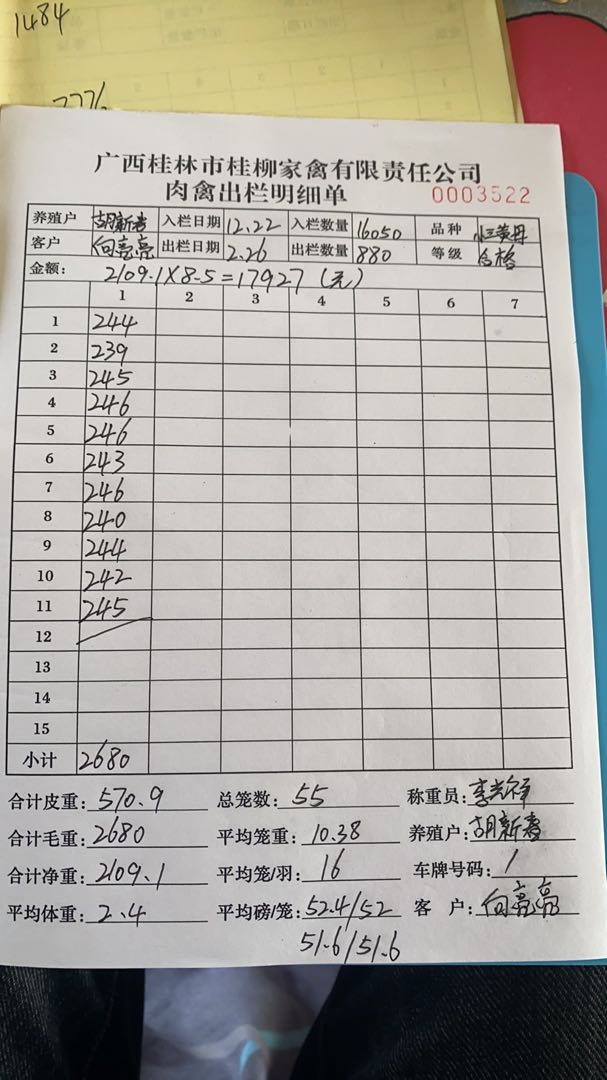 1484
广西桂林市桂柳家禽有限责任公司
肉禽出栏明细单 0003522
养殖户 胡新春 入栏日期 12.22 入栏数量 16050 品种
客户 向亮亮 出栏日期 2.26 出栏数量 880 等级 合格
金额: 2109.1X8.5=17927(元)
1 2 3 4 5 6 7
1 244
2 239
3 245
4 246
5 246
6 243
7 246
8 240
9 244
10 242
11 245
12
13
14
15
小计 2680
合计皮重: 570.9 总笼数: 55 称重员:
合计毛重: 2680 平均笼重: 10.38 养殖户: 胡新春
合计净重: 2109.1 平均笼/羽: 16 车牌号码: /
平均体重: 2.4 平均磅/笼: 52.4/52 客 户: 向亮亮
51.6/51.6